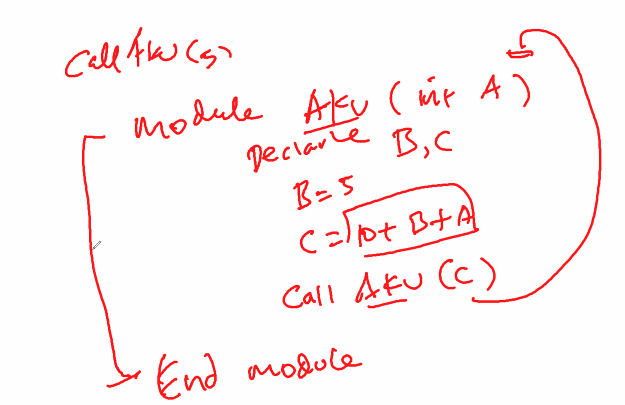 Call Aku (5)
Module AKU (int A)
Declare B, C
B = 5
C = 10 + B + A
Call AKU (C)
End module